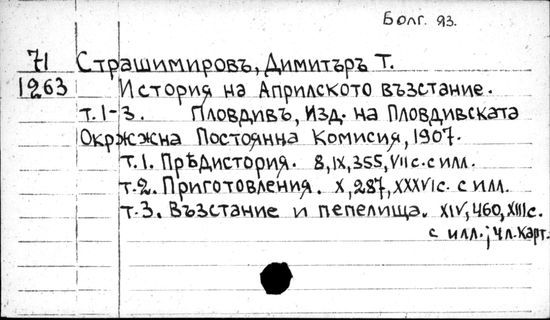 Болг. 93.
71 Страшимировъ, Димитъръ Т.
1263 История на Априлското възстание.
т. 1-3. Пловдивъ, Изд. на Пловдивската
Окрѫжна Постоянна Комисия, 1907.
т. 1. Прѣдистория. 8, IX, 355, VII с. с илл.
т. 2. Приготовления. X, 287, XXXVI с. с илл.
т. 3. Възстание и пепелища. XIV, 460, XIII с.
с илл.; 4 л. карт.